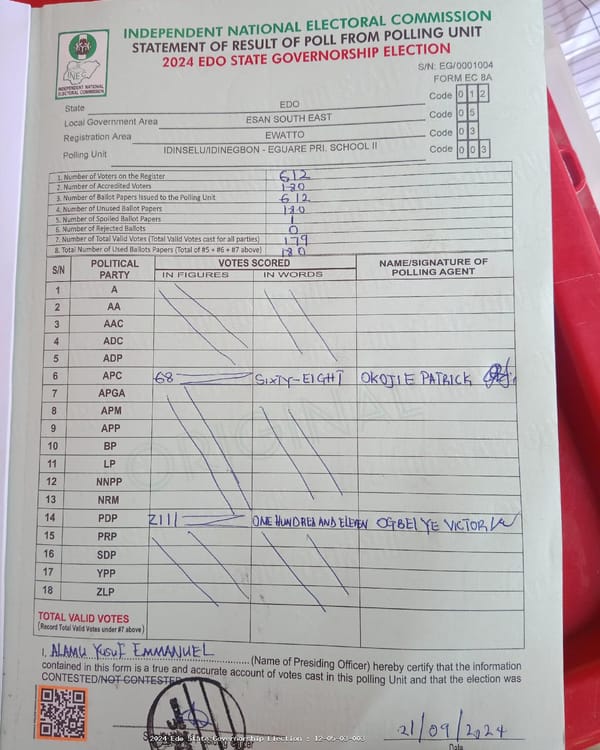 INDEPENDENT NATIONAL ELECTORAL COMMISSION
STATEMENT OF RESULT OF POLL FROM POLLING UNIT
2024 EDO STATE GOVERNORSHIP ELECTION
INEC
INDEPENDENT NATIONAL ELECTORAL COMMISSION
S/N: EG/0001004
FORM EC 8A
State EDO Code 0 1 2
Local Government Area ESAN SOUTH EAST Code 0 5
Registration Area EWATTO Code 0 3
Polling Unit IDINSELU/IDINEGBON - EGUARE PRI. SCHOOL II Code 0 0 3
1. Number of Voters on the Register 612
2. Number of Accredited Voters 180
3. Number of Ballot Papers Issued to the Polling Unit 612
4. Number of Unused Ballot Papers 180
5. Number of Spoiled Ballot Papers 1
6. Number of Rejected Ballots 0
7. Number of Total Valid Votes (Total Valid Votes cast for all parties) 179
8. Total Number of Used Ballots Papers (Total of #5 + #6 + #7 above) 180
S/N POLITICAL PARTY VOTES SCORED NAME/SIGNATURE OF POLLING AGENT
IN FIGURES IN WORDS
1 A
2 AA
3 AAC
4 ADC
5 ADP
6 APC 68 SIXTY-EIGHT OKOJIE PATRICK
7 APGA
8 APM
9 APP
10 BP
11 LP
12 NNPP
13 NRM
14 PDP 111 ONE HUNDRED AND ELEVEN OGBELYE VICTOR
15 PRP
16 SDP
17 YPP
18 ZLP
ORIGINAL
TOTAL VALID VOTES
(Record Total Valid Votes under #7 above)
I, ALAMU YUSUF EMMANUEL (Name of Presiding Officer) hereby certify that the information
contained in this form is a true and accurate account of votes cast in this polling Unit and that the election was
CONTESTED/NOT CONTESTED
21/09/2024
Date
2024 Edo State Governorship Election : 12-05-03-003